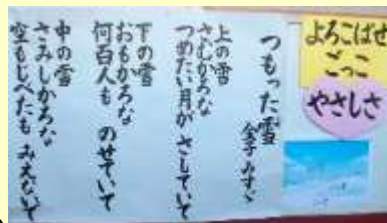 よろこばせ
ごっこ
やさしさ
つもった雪
金子みすゞ
上の雪
さむかろな
つめたい月がさしていて
下の雪
おもかろな
何百人も のせていて
中の雪
さみしかろな
空もじべたも みえないで